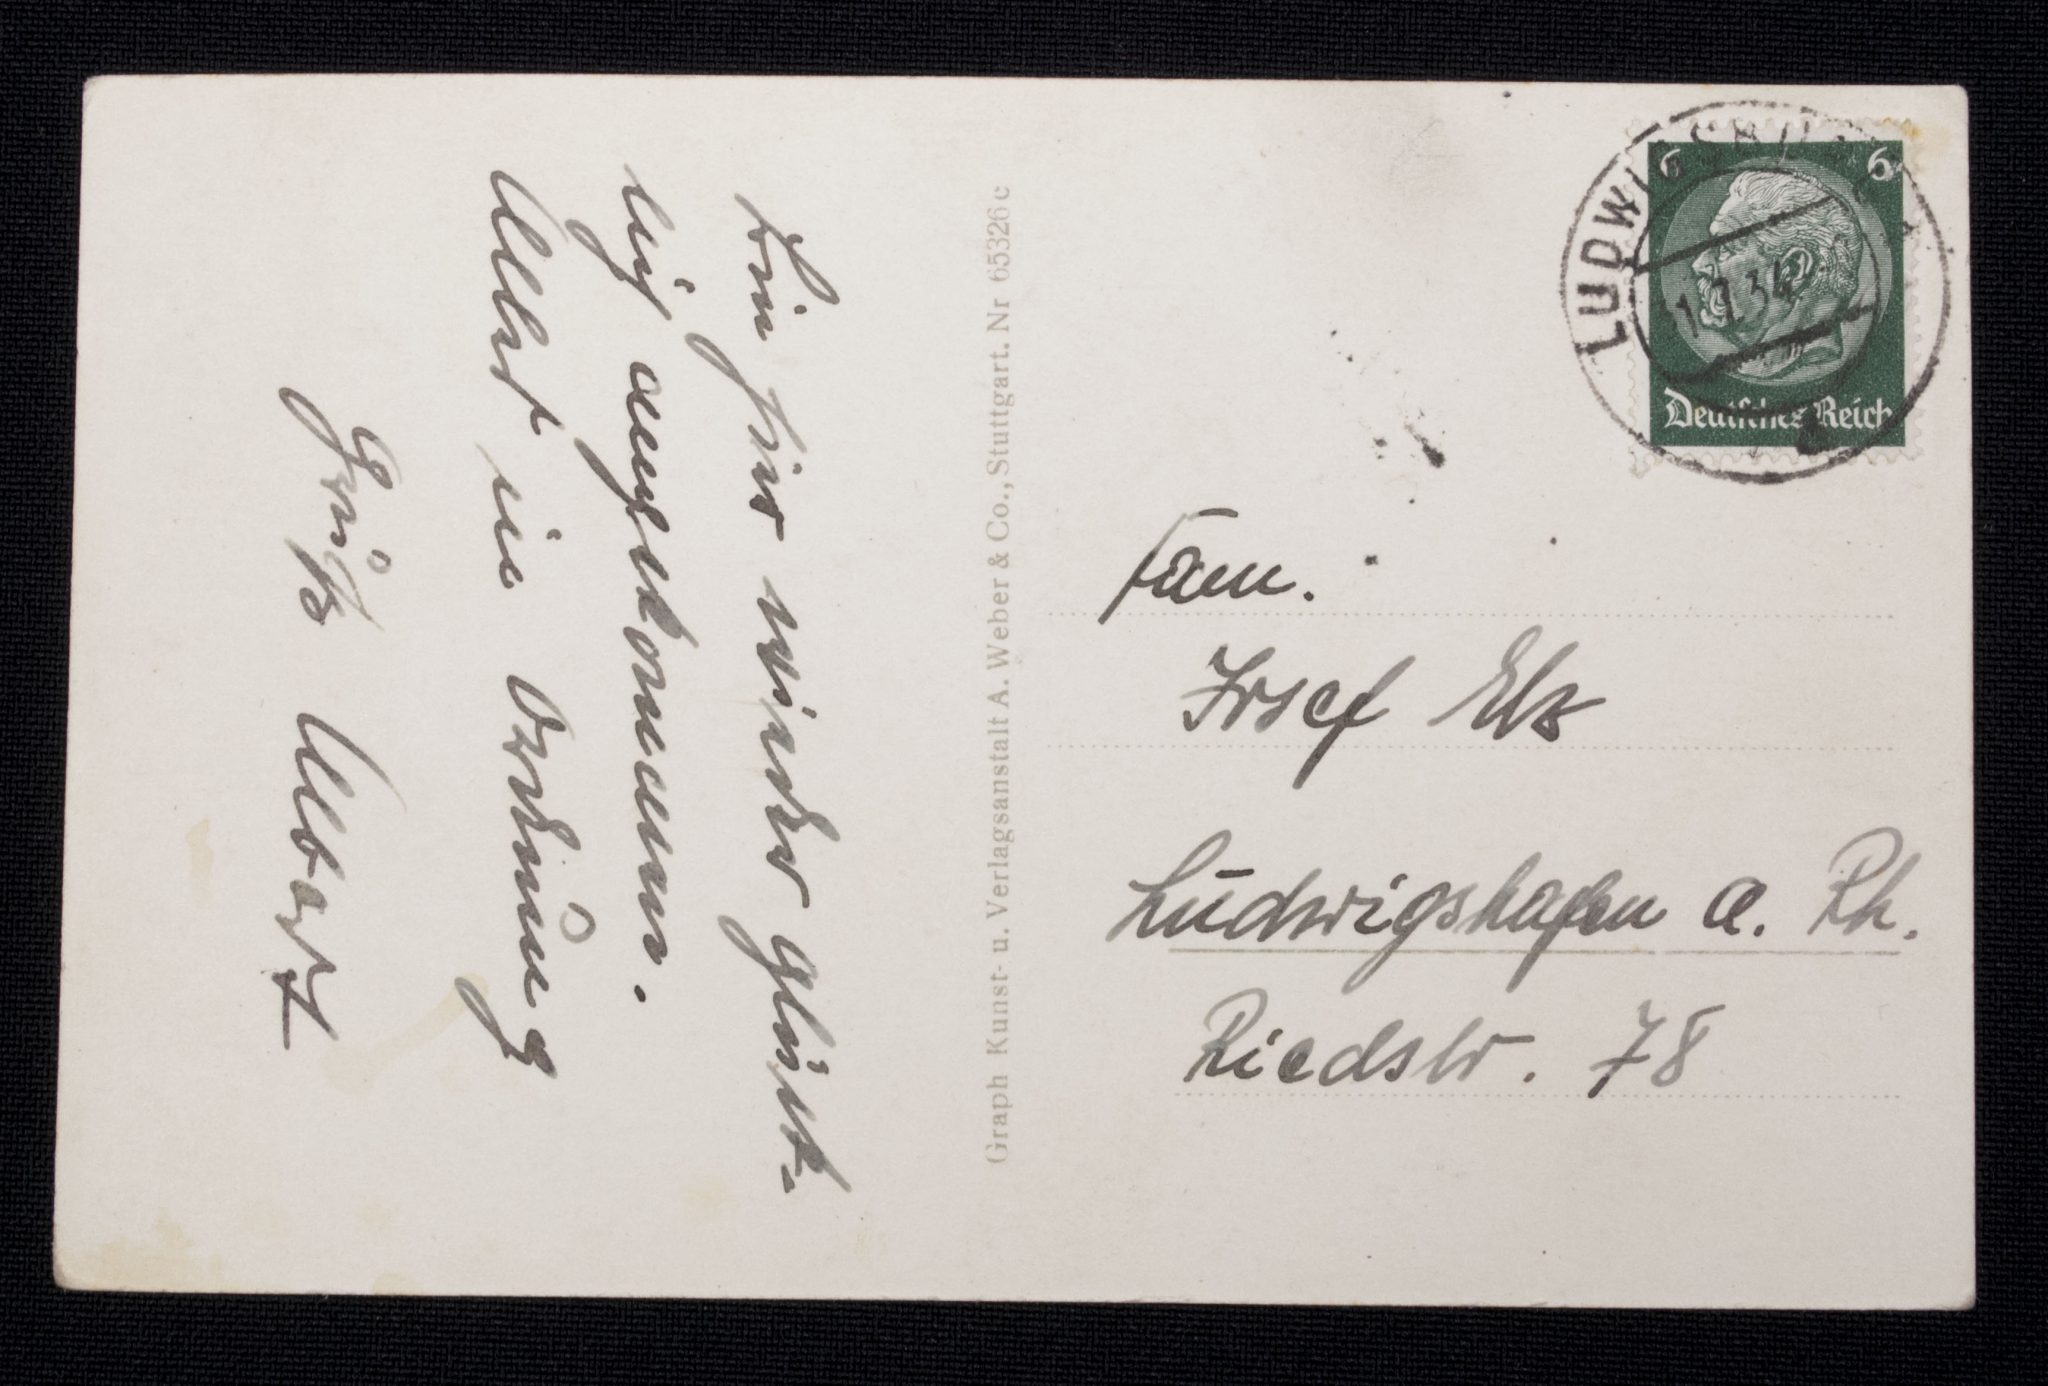 Bin hier wieder glück-
lich angekommen.
Alles in Ordnung
Gruß Albert
Graph Kunst- u. Verlagsanstalt A. Weber & Co., Stuttgart. Nr 65326c
6 6
Deutsches Reich
Fam.
Josef
Ludwigshafen a. Rh.
Riedstr. 78